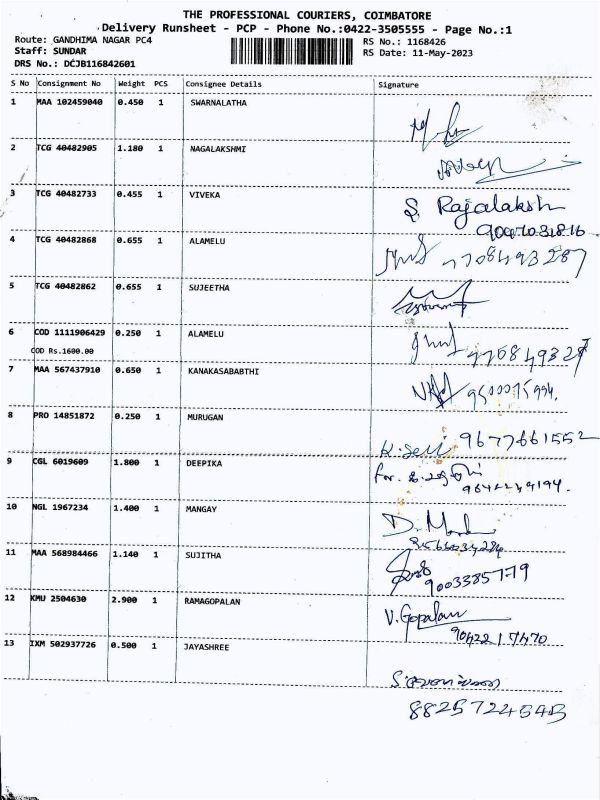 THE PROFESSIONAL COURIERS, COIMBATORE
Delivery Runsheet - PCP - Phone No.:0422-3505555 - Page No.:1
Route: GANDHIMA NAGAR PC4
RS No.: 1168426
Staff: SUNDAR
RS Date: 11-May-2023
DRS No.: DCJB116842601
S No Consignment No Weight PCS Consignee Details Signature
1 MAA 102459040 0.450 1 SWARNALATHA
2 TCG 40482905 1.180 1 NAGALAKSHMI
3 TCG 40482733 0.455 1 VIVEKA S. Rajalaksh
4 TCG 40482868 0.655 1 ALAMELU 7708493287
5 TCG 40482862 0.655 1 SUJEETHA
6 COD 1111906429 0.250 1 ALAMELU
COD Rs.1600.00
7708493287
7 MAA 567437910 0.650 1 KANAKASABABTHI
8 PRO 14851872 0.250 1 MURUGAN 9677661552
9 CGL 6019609 1.800 1 DEEPIKA for.
10 NGL 1967234 1.400 1 MANGAY
11 MAA 568984466 1.140 1 SUJITHA
9003385779
12 KMU 2504630 2.900 1 RAMAGOPALAN V. Gopalan
9042217470
13 IXM 502937726 0.500 1 JAYASHREE
8825724543